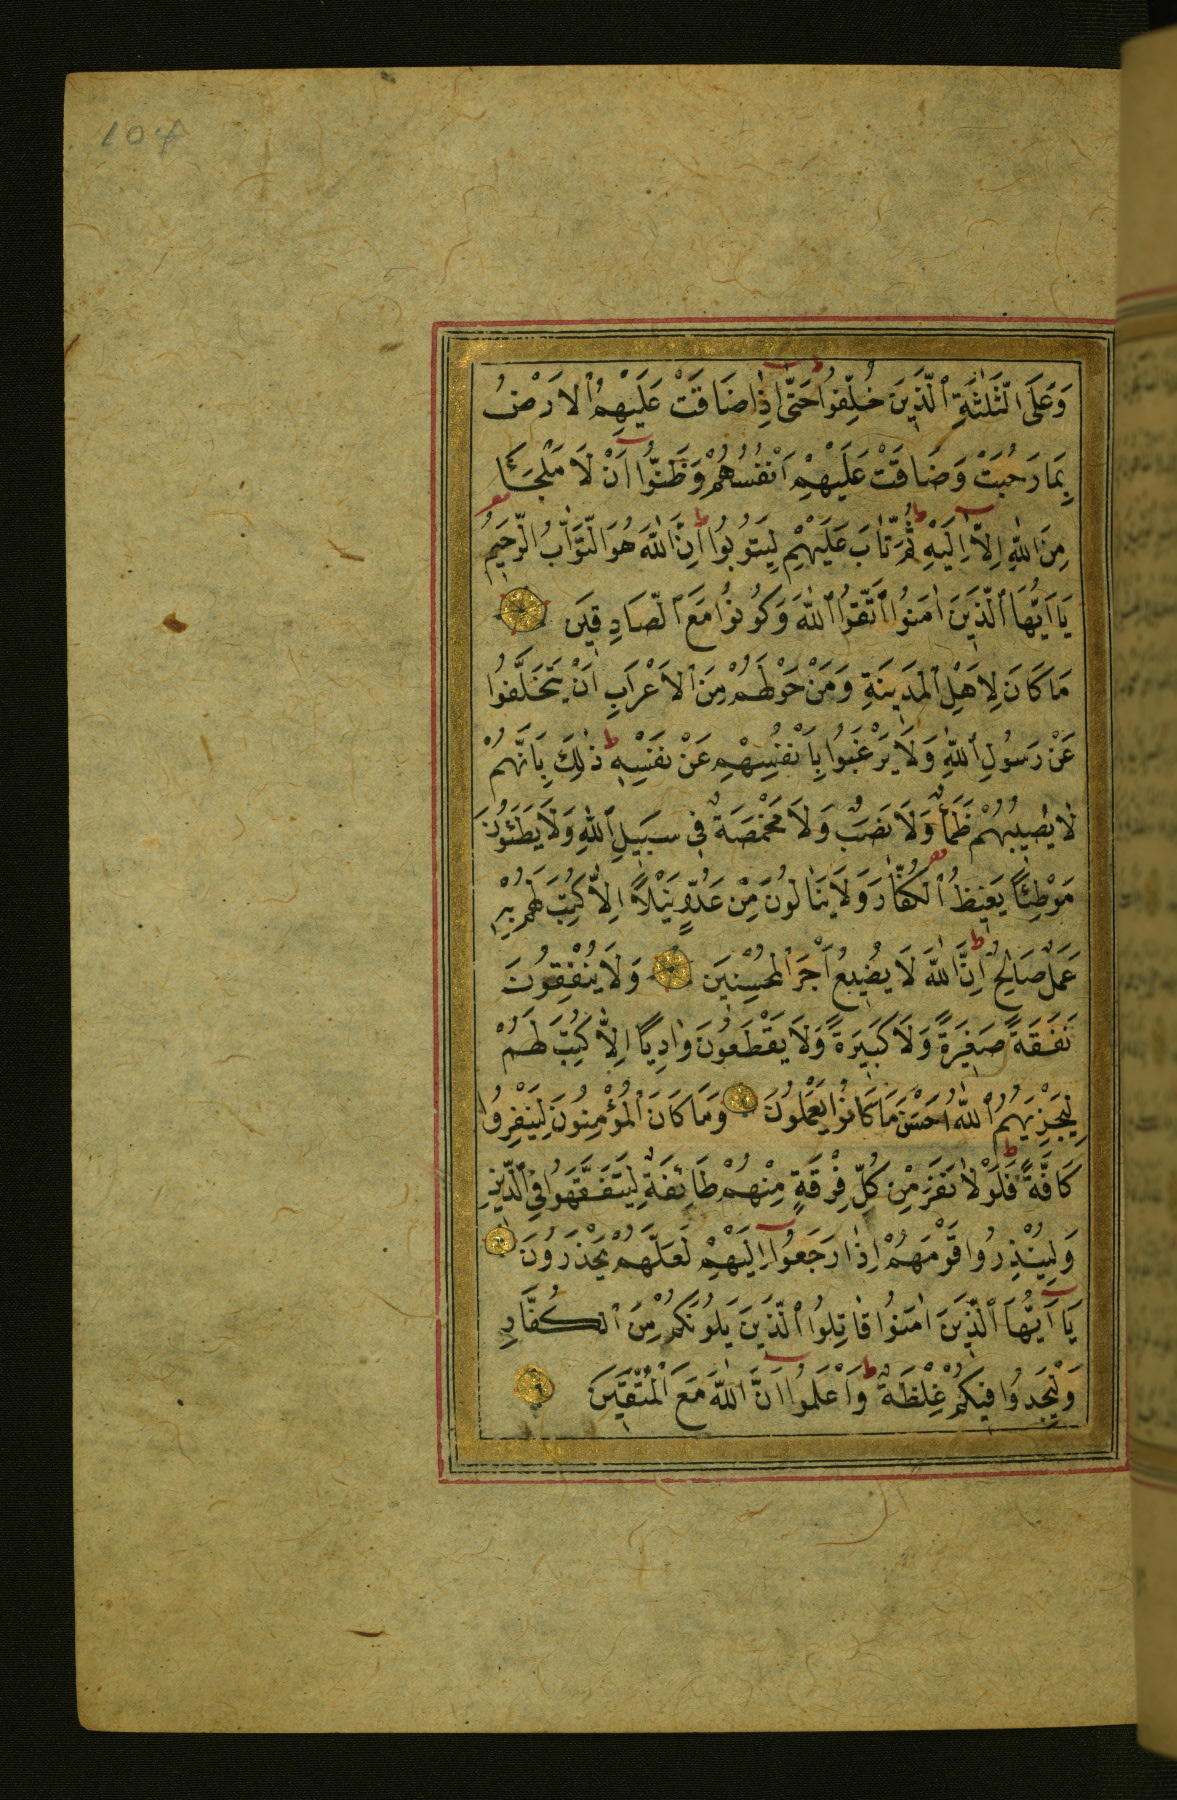 104
وَعَلَى الثَّلٰثَةِ الَّذِينَ خُلِّفُوا حَتّٰى اِذَا ضَاقَتْ عَلَيْهِمُ الْاَرْضُ
بِمَا رَحُبَتْ وَضَاقَتْ عَلَيْهِمْ اَنْفُسُهُمْ وَظَنُّوا اَنْ لَا مَلْجَأَ
مِنَ اللّٰهِ اِلَّا اِلَيْهِ ثُمَّ تَابَ عَلَيْهِمْ لِيَتُوبُوا اِنَّ اللّٰهَ هُوَ التَّوَّابُ الرَّحِيمُ
يَا اَيُّهَا الَّذِينَ اٰمَنُوا اتَّقُوا اللّٰهَ وَكُونُوا مَعَ الصَّادِقِينَ
مَا كَانَ لِاَهْلِ الْمَدِينَةِ وَمَنْ حَوْلَهُمْ مِنَ الْاَعْرَابِ اَنْ يَتَخَلَّفُوا
عَنْ رَسُولِ اللّٰهِ وَلَا يَرْغَبُوا بِاَنْفُسِهِمْ عَنْ نَفْسِهِ ذٰلِكَ بِاَنَّهُمْ
لَا يُصِيبُهُمْ ظَمَأٌ وَلَا نَصَبٌ وَلَا مَخْمَصَةٌ فِي سَبِيلِ اللّٰهِ وَلَا يَطَئُونَ
مَوْطِئًا يَغِيظُ الْكُفَّارَ وَلَا يَنَالُونَ مِنْ عَدُوٍّ نَيْلًا اِلَّا كُتِبَ لَهُمْ بِهِ
عَمَلٌ صَالِحٌ اِنَّ اللّٰهَ لَا يُضِيعُ اَجْرَ الْمُحْسِنِينَ وَلَا يُنْفِقُونَ
نَفَقَةً صَغِيرَةً وَلَا كَبِيرَةً وَلَا يَقْطَعُونَ وَادِيًا اِلَّا كُتِبَ لَهُمْ
لِيَجْزِيَهُمُ اللّٰهُ اَحْسَنَ مَا كَانُوا يَعْمَلُونَ وَمَا كَانَ الْمُؤْمِنُونَ لِيَنْفِرُوا
كَافَّةً فَلَوْلَا نَفَرَ مِنْ كُلِّ فِرْقَةٍ مِنْهُمْ طَائِفَةٌ لِيَتَفَقَّهُوا فِي الدِّينِ
وَلِيُنْذِرُوا قَوْمَهُمْ اِذَا رَجَعُوا اِلَيْهِمْ لَعَلَّهُمْ يَحْذَرُونَ
يَا اَيُّهَا الَّذِينَ اٰمَنُوا قَاتِلُوا الَّذِينَ يَلُونَكُمْ مِنَ الْكُفَّارِ
وَلْيَجِدُوا فِيكُمْ غِلْظَةً وَاعْلَمُوا اَنَّ اللّٰهَ مَعَ الْمُتَّقِينَ